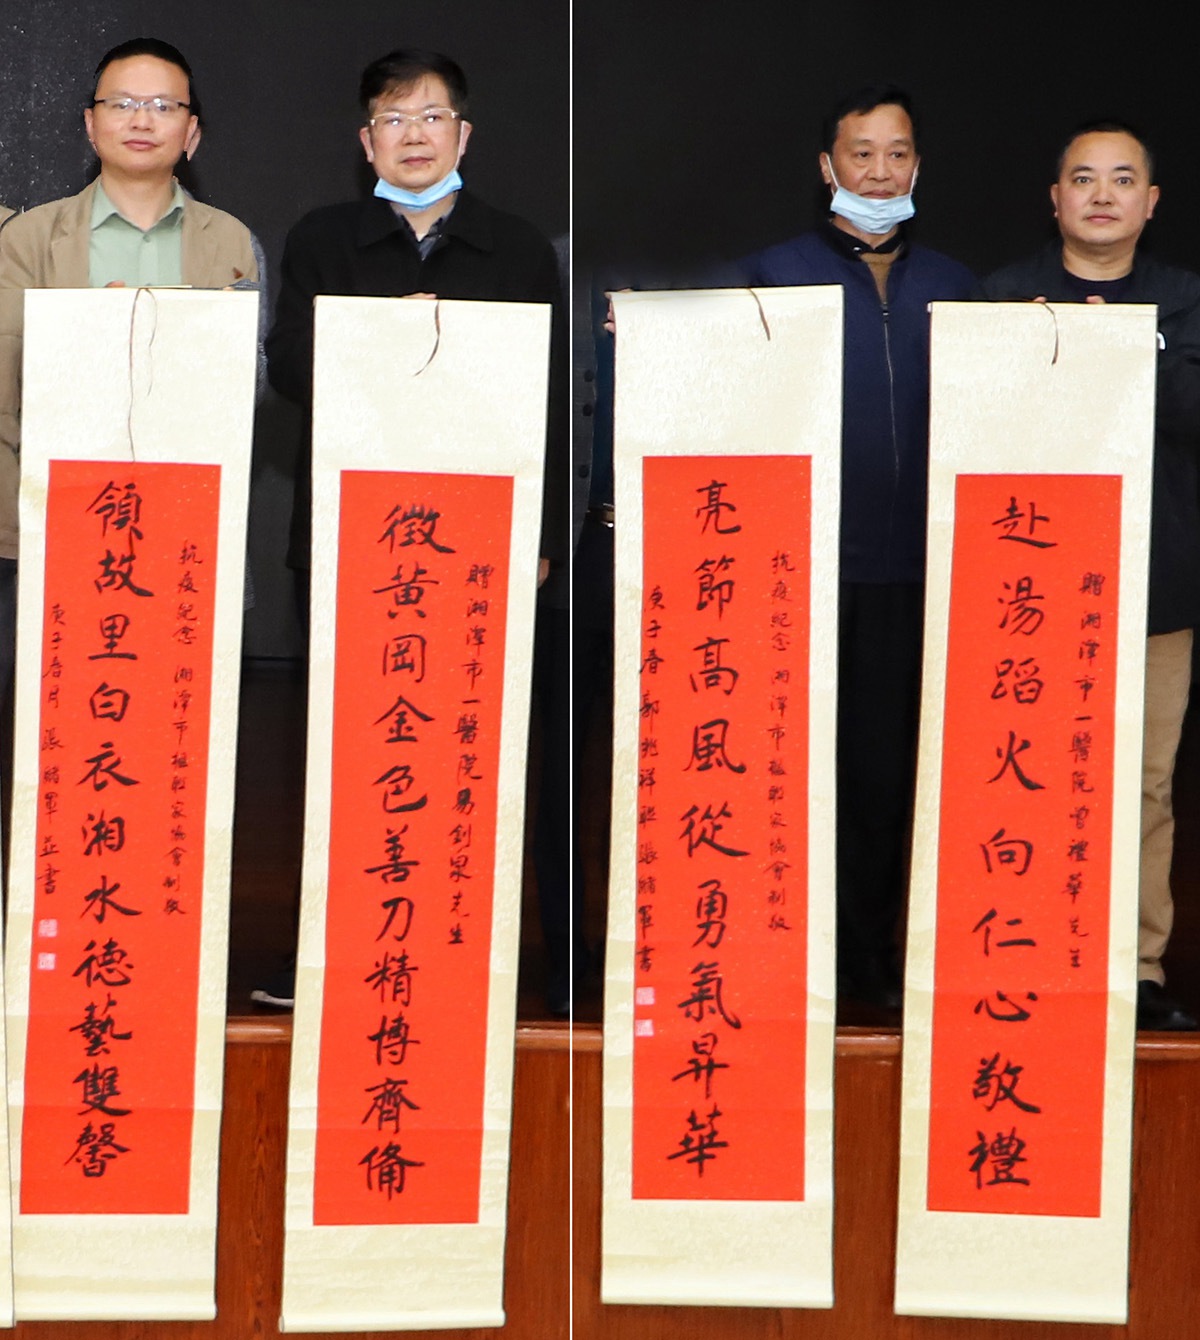 贈湘潭市一醫院易釗泉先生
徵黃岡金色善刀精博齊備
抗疫紀念 湘潭市楹聯家協會制敬
領故里白衣湘水德藝雙馨
庚子春月 張緒軍並書
贈湘潭市一醫院曾禮華先生
赴湯蹈火向仁心敬禮
抗疫紀念 湘潭市楹聯家協會制敬
亮節高風從勇氣昇華
庚子春 郭兆祥聯 張緒軍書